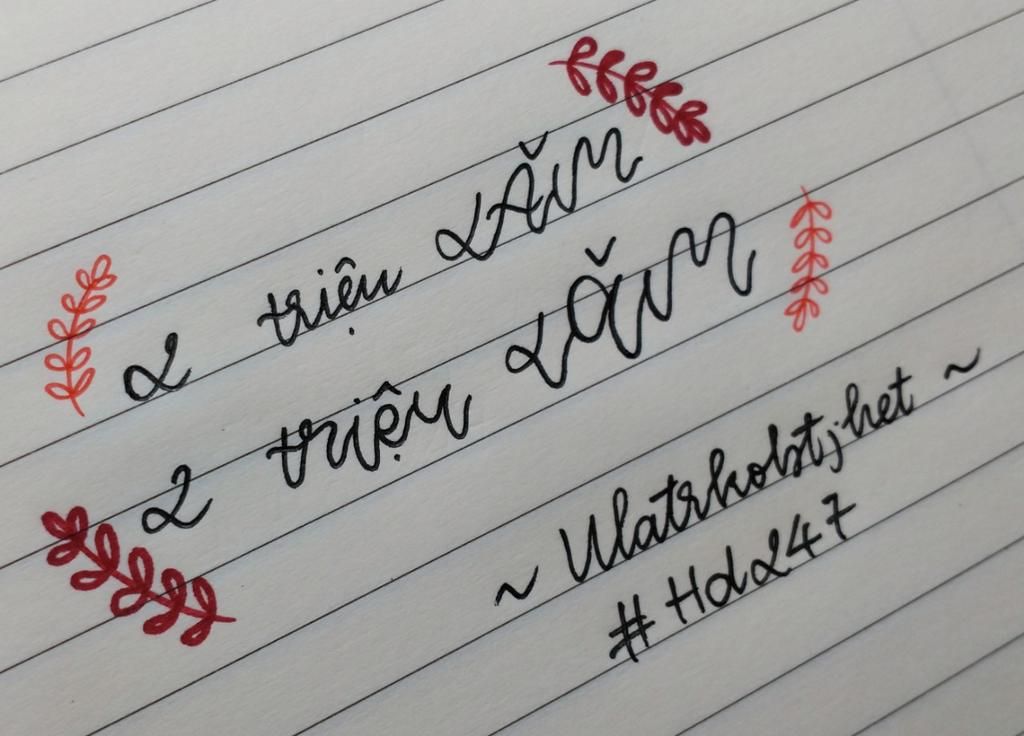 2 triệu LĂM
2 triệu Lăm
~ Ulatrkolstjhet ~
#Hd247